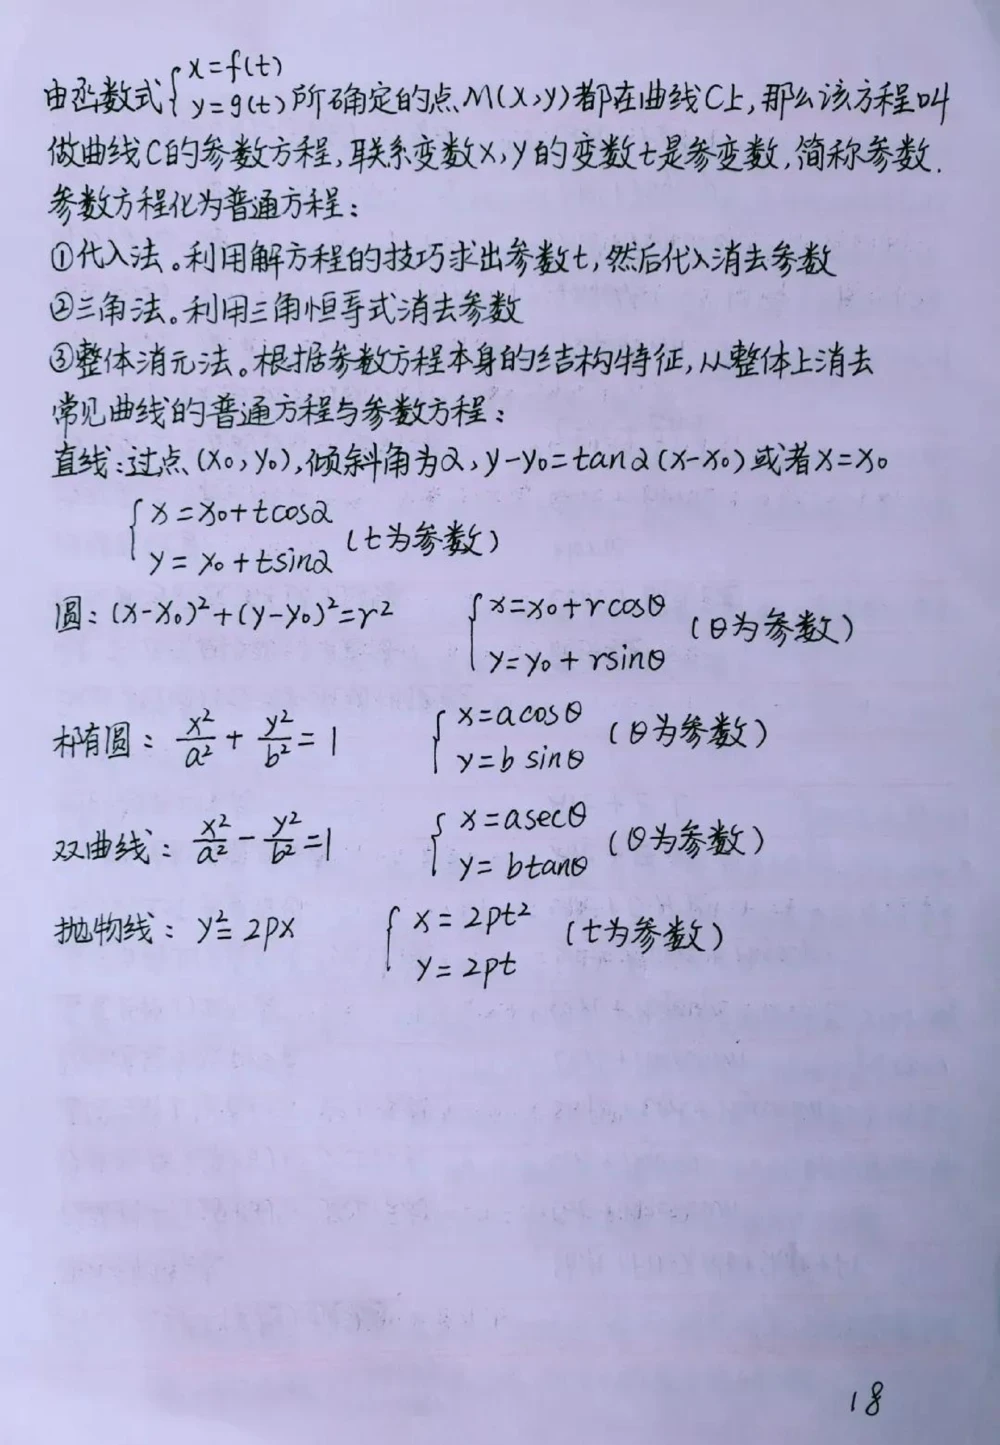 由函数式{x=f(t)
y=g(t)所确定的点M(x,y)都在曲线C上,那么该方程叫
做曲线C的参数方程,联系变数x,y的变数t是参变数,简称参数.
参数方程化为普通方程:
①代入法。利用解方程的技巧求出参数t,然后代入消去参数
②三角法。利用三角恒等式消去参数
③整体消元法。根据参数方程本身的结构特征,从整体上消去
常见曲线的普通方程与参数方程:
直线:过点(x₀,y₀),倾斜角为α,y-y₀=tanα(x-x₀)或者x=x₀
{x=x₀+tcosα
y=x₀+tsinα (t为参数)
圆:(x-x₀)²+(y-y₀)²=r² {x=x₀+rcosθ
y=y₀+rsinθ (θ为参数)
椭圆:x²/a²+y²/b²=1 {x=acosθ
y=b sinθ (θ为参数)
双曲线:x²/a²-y²/b²=1 {x=asecθ
y=btanθ (θ为参数)
抛物线:y²=2px {x=2pt²
y=2pt (t为参数)
18